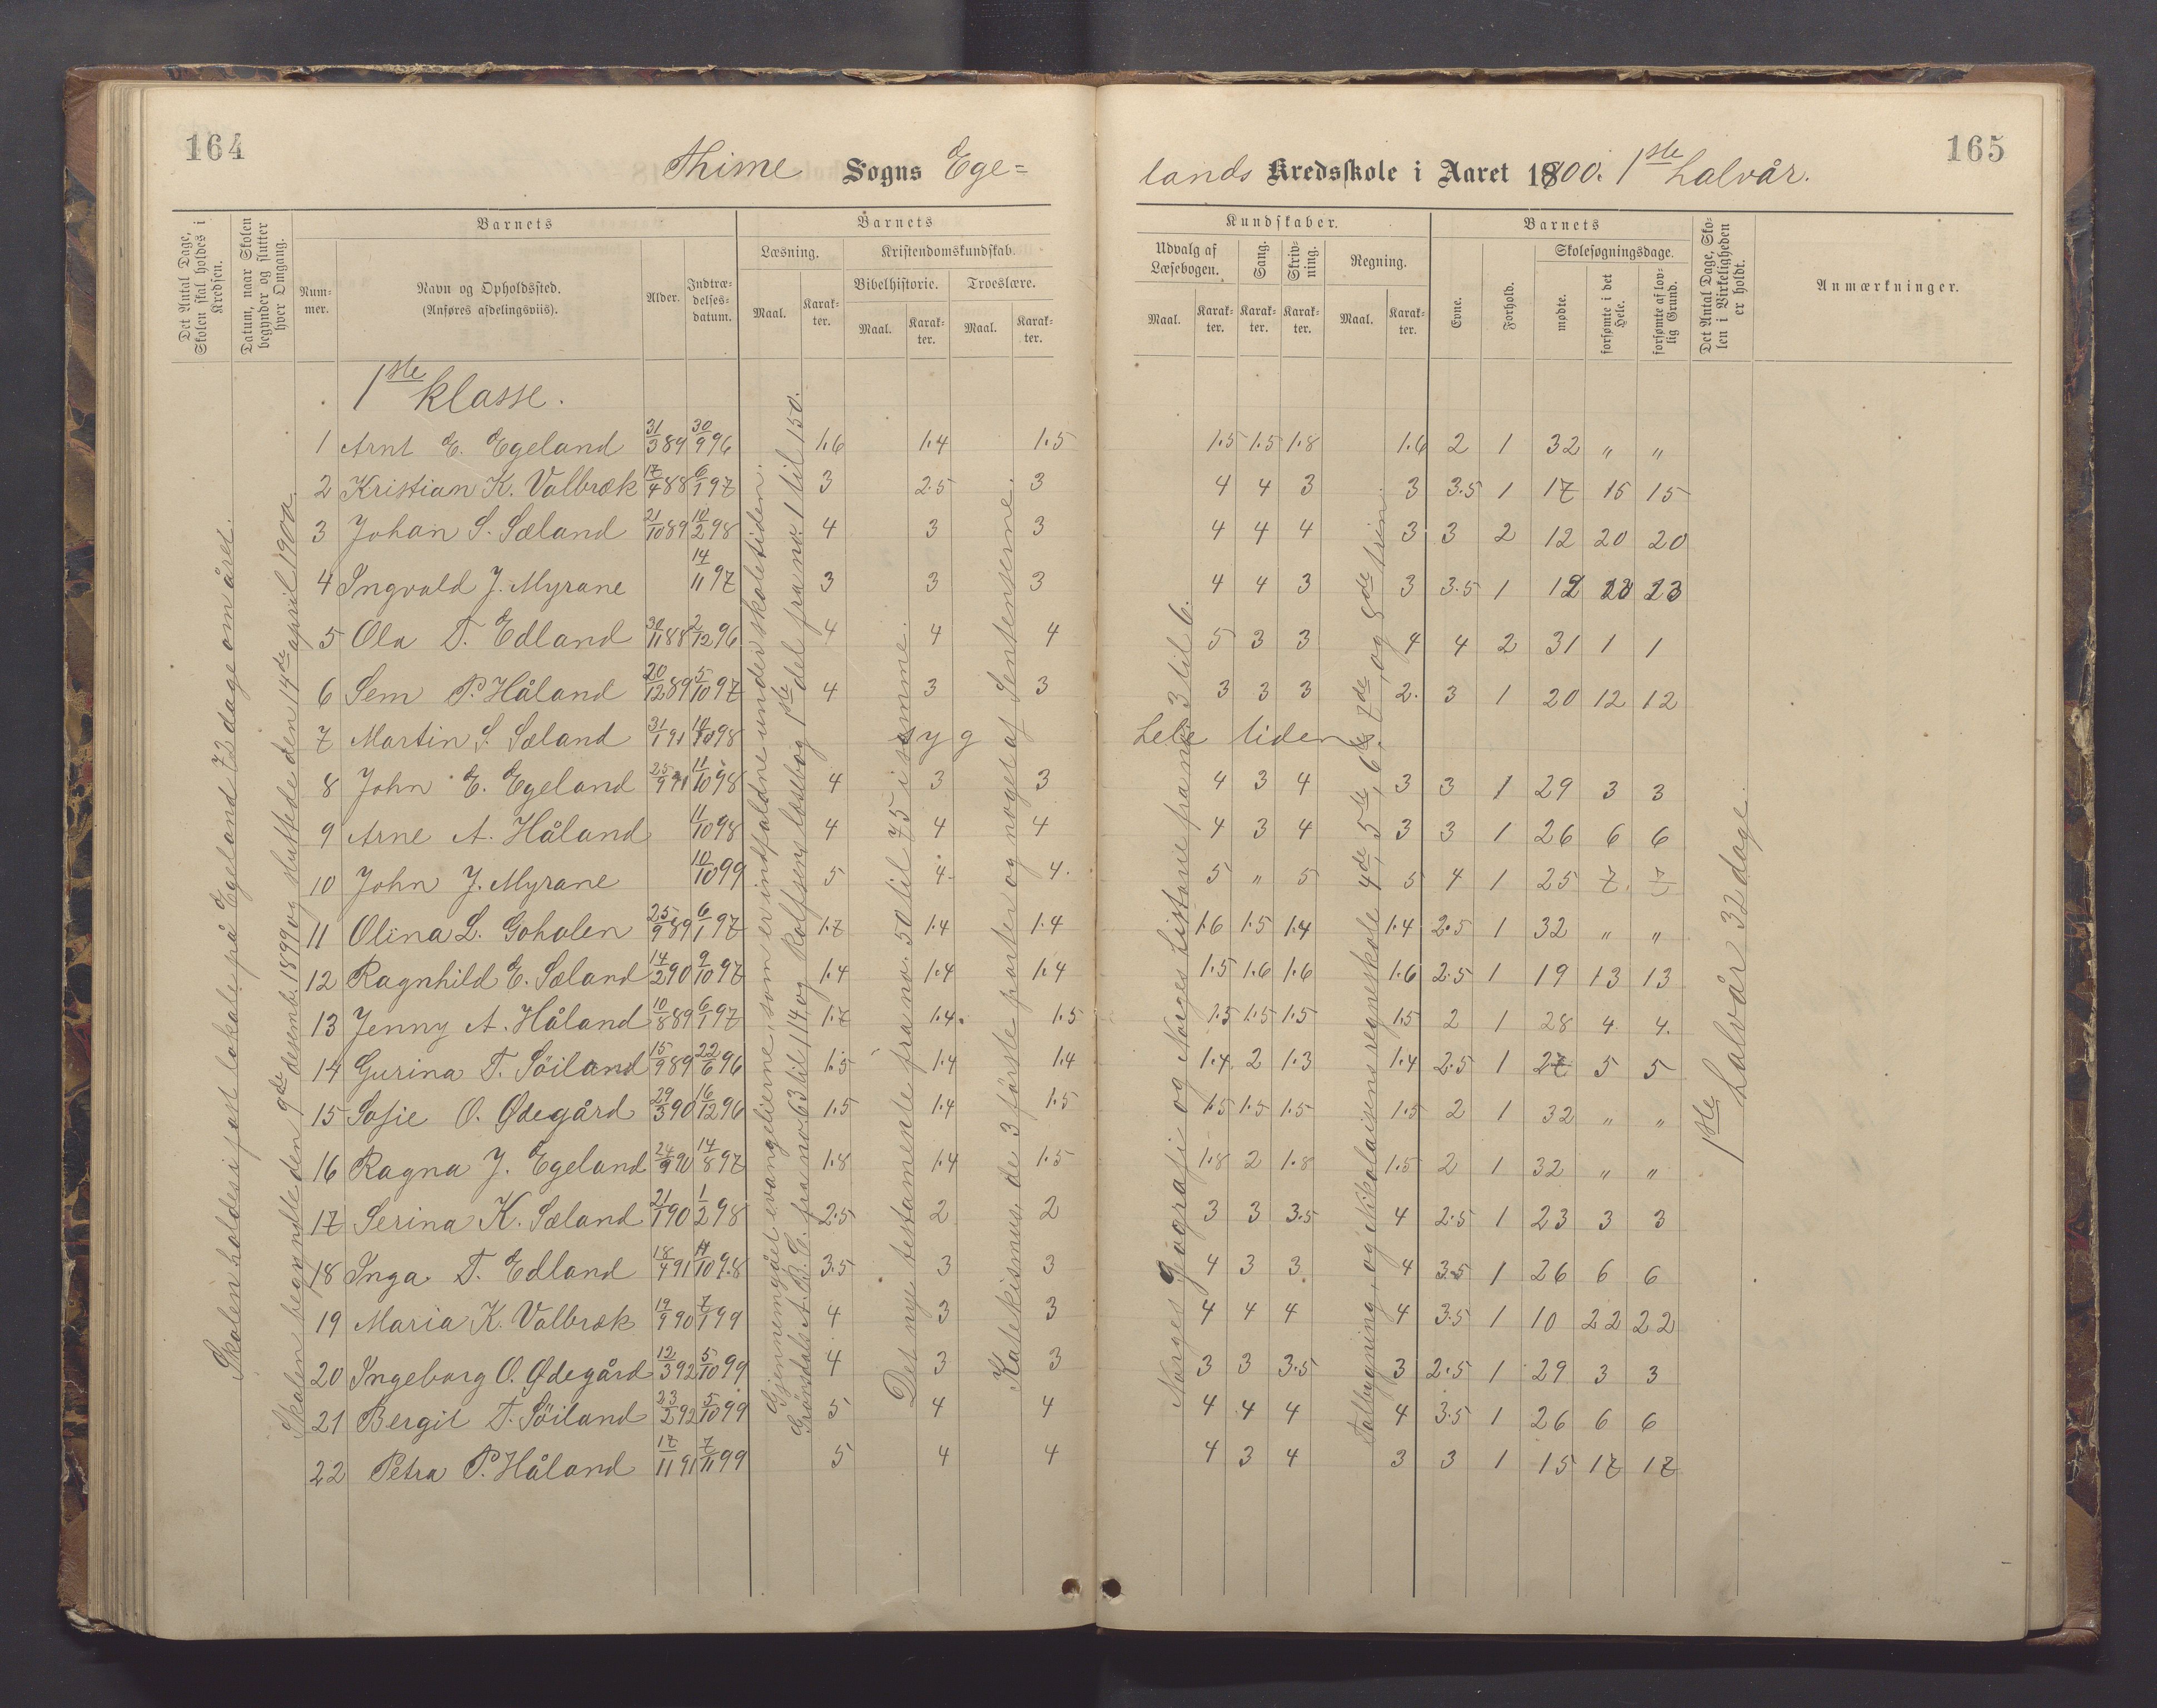 164
Thime Sogns Ege=
lands Kredsskole i Aaret 1900. 1ste halvår.
165
Det Antal Dage, Skolen skal holdes i Kredsen.
Datum, naar Skolen begynder og slutter hver Omgang.
Barnets
Nummer.
Navn og Opholdssted.
(Anføres afdelingsviis).
Alder.
Indtrædelses-datum.
Barnets
Læsning.
Kristendomskundskab.
Bibelhistorie.
Troeslære.
Maal. Karakter. Maal. Karakter. Maal. Karakter.
Kundskaber.
Udvalg af Læsebogen.
Sang.
Skrivning.
Regning.
Maal. Karakter. Karakter. Karakter. Maal. Karakter.
Barnets
Evne.
Forhold.
Skolesøgningsdage.
mødte.
forsømte i det Hele.
forsømte af lovlig Grund.
Det Antal Dage, Skolen i Virkeligheden er holdt.
Anmærkninger.
1ste klasse.
1 Arnt E. Egeland 31/3 89 30/9 96 1.6 1.4 1.5 1.5 1.5 1.8 1.6 2 1 32 " "
2 Kristian K. Valbræk 17/4 88 6/1 97 3 2.5 3 4 4 3 3 3.5 1 17 15 15
3 Johan S. Sæland 21/10 89 10/2 98 4 3 3 4 4 4 3 3 2 12 20 20
4 Ingvald J. Myrane 14/11 97 3 3 3 4 4 3 3 3.5 1 12 20 23
5 Ola T. Edland 30/11 88 2/12 96 4 4 4 5 3 3 4 4 2 31 1 1
6 Sem P. Håland 20/12 89 5/10 97 4 3 3 3 3 3 2. 3 1 20 12 12
7 Martin S. Sæland 31/1 91 10/10 98 syg hele tiden.
8 John E. Egeland 25/9 91 11/10 98 4 3 3 4 3 4 3 3 1 29 3 3
9 Arne A. Håland 11/10 98 4 4 4 4 3 4 3 3 1 26 6 6
10 John J. Myrane 10/10 99 5 4. 4. 5 " 5 5 4 1 25 7 7
11 Olina L. Goholen 25/9 89 6/1 97 1.7 1.4 1.4 1.6 1.5 1.4 1.4 2.5 1 32 " "
12 Ragnhild E. Sæland 14/2 90 9/10 97 1.4 1.4 1.4 1.5 1.6 1.6 1.6 2.5 1 19 13 13
13 Jenny A. Håland 10/8 89 6/1 97 1.7 1.4. 1.5 1.5 1.5 1.5 1.5 2 1 28 4. 4.
14 Gurina T. Söiland 15/9 89 22/6 96 1.5 1.4 1.4 1.4 2 1.3 1.4 2.5 1 27 5 5
15 Sofie O. Ødegård 29/3 90 16/12 96 1.5 1.4 1.5 1.5 1.5 1.5 1.5 2 1 32 " "
16 Ragna J. Egeland 24/9 90 14/8 97 1.8 1.4 1.5 1.8 2 1.8 1.5 2 1 32 " "
17 Serina K. Sæland 21/1 90 1/2 98 2.5 2 2 3 3 3.5 4 2.5 1 23 3 3
18 Inga T. Edland 18/4 91 11/10 98 3.5 3 3 4 3 3 4 3.5 1 26 6 6
19 Maria K. Valbræk 19/9 90 7/1 99 4 3 3 4 4 4 4 3.5 1 10 22 22
20 Ingeborg O. Ødegård 12/3 92 5/10 99 4 3 3 3 3 3.5 3 2.5 1 29 3 3
21 Bergit T. Söiland 23/2 92 5/10 99 5 4 4 4 4 4 4 3.5 1 26 6 6
22 Petra P. Håland 17/11 91 7/11 99 5 4 4 4 3 4 3 3 1 15 17 17
Skolen holdes i fast lokale på Egeland 72 dage om året.
Skolen begyndte den 9de desemb. 1899 og sluttede den 14de april 1900.
Gjennemgået evangelierne, som er indfaldne under skoletiden.
Grønsdals A.B.C. fra no. 63 til 114 og Rolfsens læsebog 1ste del fra no. 1 til 150.
Det nye testamente fra no. 50 til 75 i samme.
Katekismus de 3 første parter og noget af Sentenserne.
Norges Geografi og Norges historie fra no. 3 til 6.
Talbygning, og Nikolaisens regneskole 4de, 5te, 6te, 7de, og 8de trin.
1ste halvår 32 dage.